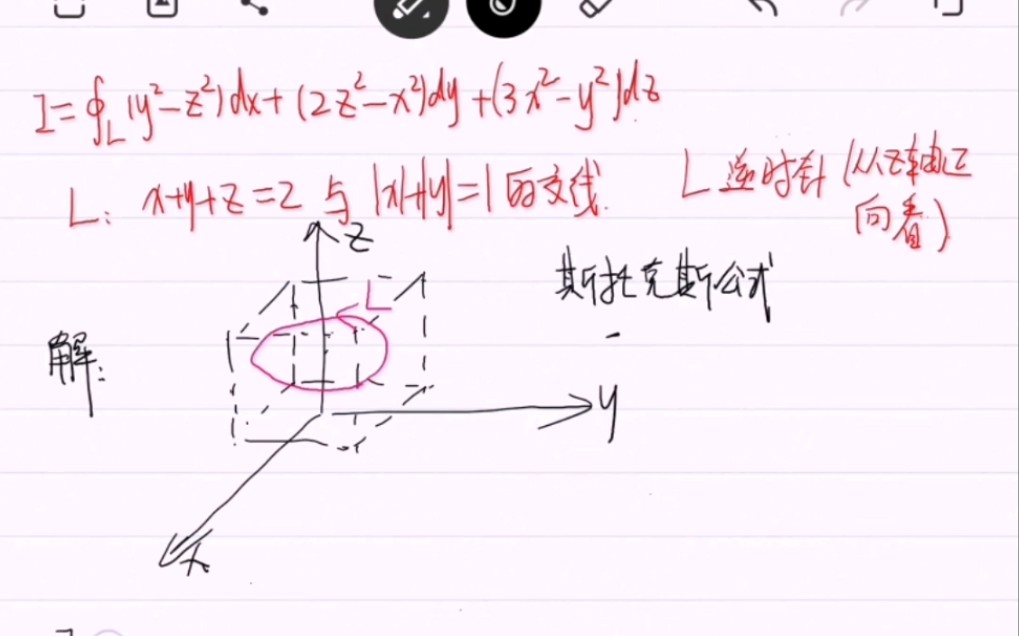 I=∮_L (y²-z²)dx+(2z²-x²)dy+(3x²-y²)dz
L: x+y+z=2 与 |x|+|y|=1 的交线. L 逆时针 (从z轴正向看)
z
斯托克斯公式
L
解:
y
x